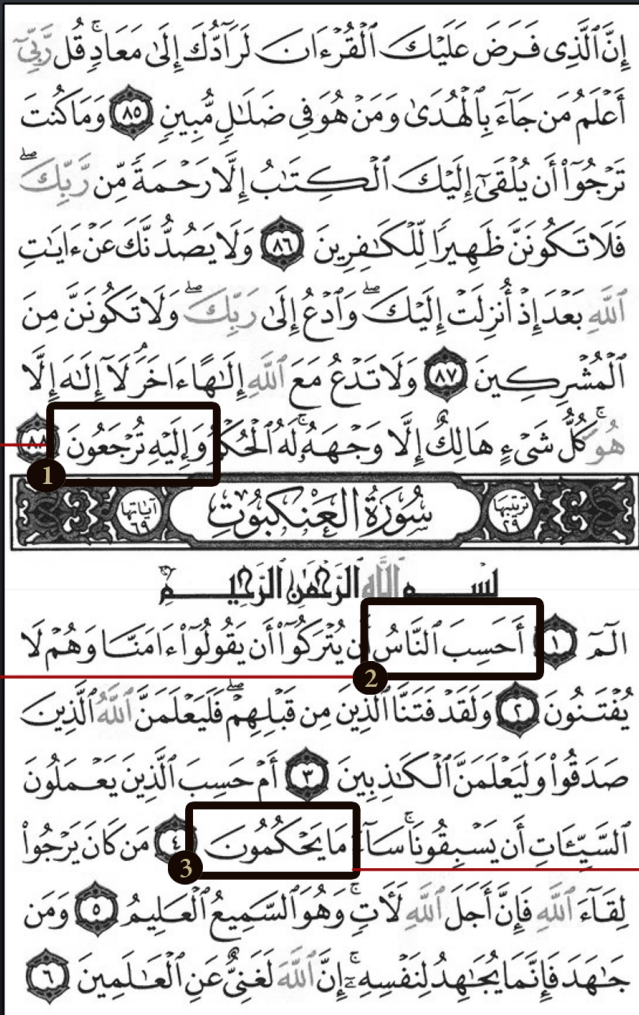 إِنَّ ٱلَّذِى فَرَضَ عَلَيْكَ ٱلْقُرْءَانَ لَرَآدُّكَ إِلَىٰ مَعَادٍۚ قُل رَّبِّىٓ
أَعْلَمُ مَن جَآءَ بِٱلْهُدَىٰ وَمَنْ هُوَ فِى ضَلَٰلٍ مُّبِينٍ ٨٥ وَمَا كُنتَ
تَرْجُوٓا۟ أَن يُلْقَىٰٓ إِلَيْكَ ٱلْكِتَٰبُ إِلَّا رَحْمَةً مِّن رَّبِّكَۖ
فَلَا تَكُونَنَّ ظَهِيرًا لِّلْكَٰفِرِينَ ٨٦ وَلَا يَصُدُّنَّكَ عَنْ ءَايَٰتِ
ٱللَّهِ بَعْدَ إِذْ أُنزِلَتْ إِلَيْكَۖ وَٱدْعُ إِلَىٰ رَبِّكَۖ وَلَا تَكُونَنَّ مِنَ
ٱلْمُشْرِكِينَ ٨٧ وَلَا تَدْعُ مَعَ ٱللَّهِ إِلَٰهًا ءَاخَرَۘ لَآ إِلَٰهَ إِلَّا
هُوَۚ كُلُّ شَىْءٍ هَالِكٌ إِلَّا وَجْهَهُۥۚ لَهُ ٱلْحُكْمُ وَإِلَيْهِ تُرْجَعُونَ ٨٨
1
ترتيبها ٢٩ سُورَةُ العَنكَبُوتِ آياتها ٦٩
بسم الله الرحمن الرحيم
الٓمٓ ١ أَحَسِبَ ٱلنَّاسُ أَن يُتْرَكُوٓا۟ أَن يَقُولُوٓا۟ ءَامَنَّا وَهُمْ لَا
2
يُفْتَنُونَ ٢ وَلَقَدْ فَتَنَّا ٱلَّذِينَ مِن قَبْلِهِمْۖ فَلَيَعْلَمَنَّ ٱللَّهُ ٱلَّذِينَ
صَدَقُوا۟ وَلَيَعْلَمَنَّ ٱلْكَٰذِبِينَ ٣ أَمْ حَسِبَ ٱلَّذِينَ يَعْمَلُونَ
ٱلسَّيِّـَٔاتِ أَن يَسْبِقُونَاۚ سَآءَ مَا يَحْكُمُونَ ٤ مَن كَانَ يَرْجُوا۟
3
لِقَآءَ ٱللَّهِ فَإِنَّ أَجَلَ ٱللَّهِ لَءَاتٍۚ وَهُوَ ٱلسَّمِيعُ ٱلْعَلِيمُ ٥ وَمَن
جَٰهَدَ فَإِنَّمَا يُجَٰهِدُ لِنَفْسِهِۦٓۚ إِنَّ ٱللَّهَ لَغَنِىٌّ عَنِ ٱلْعَٰلَمِينَ ٦